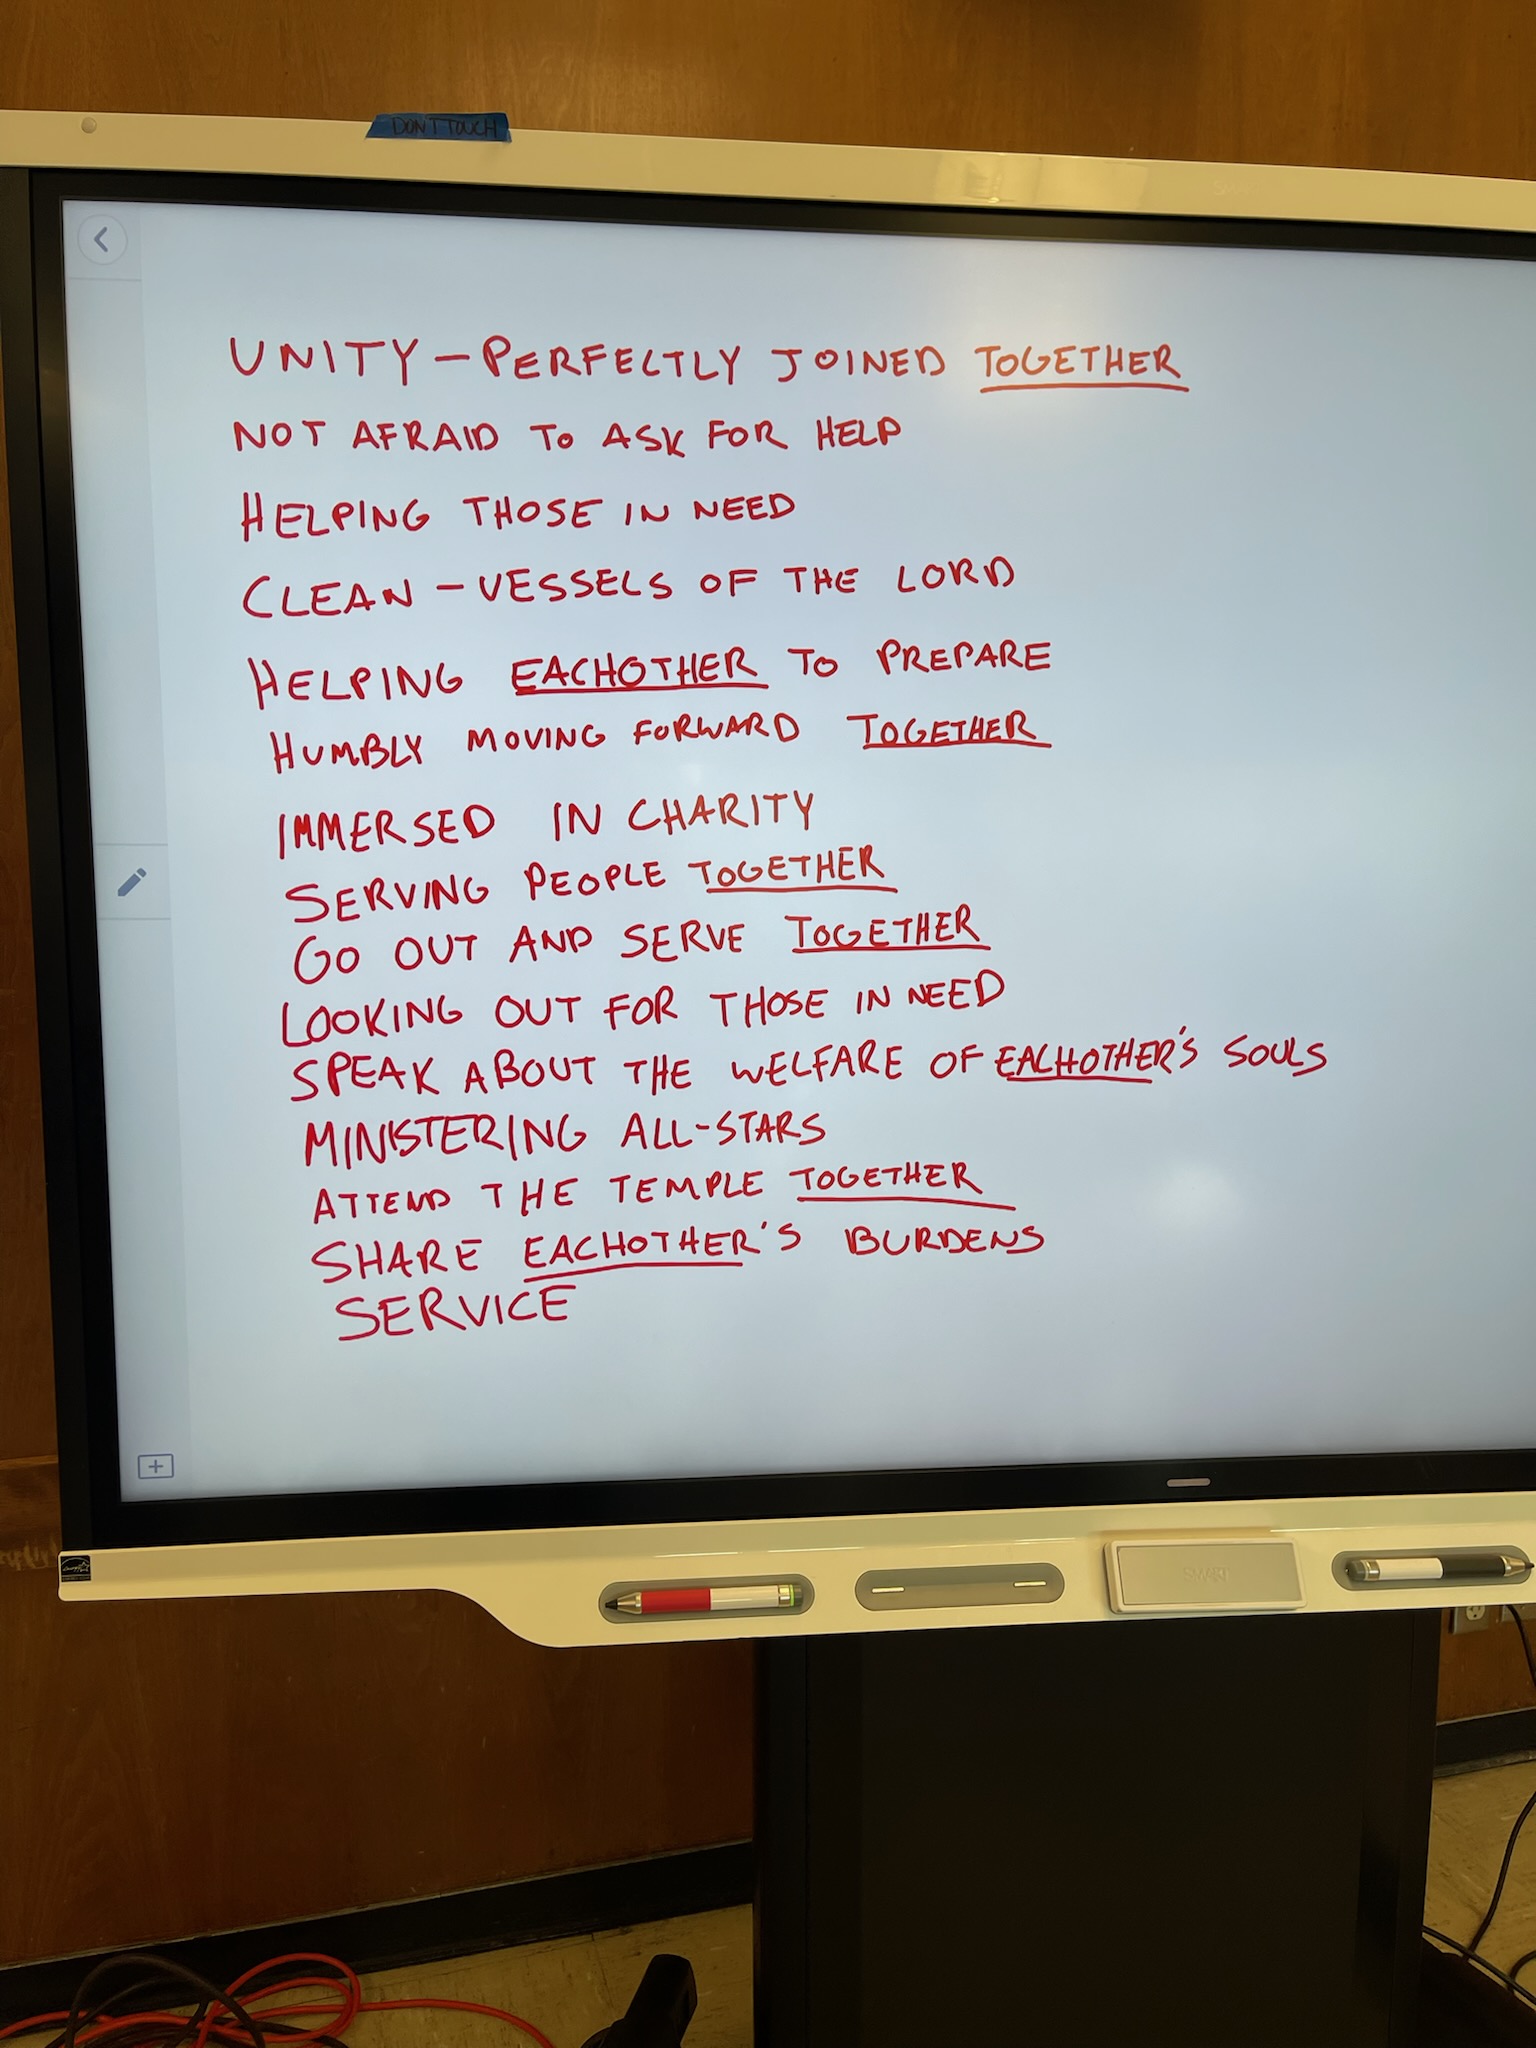 DON'T TOUCH
UNITY – PERFECTLY JOINED TOGETHER
NOT AFRAID TO ASK FOR HELP
HELPING THOSE IN NEED
CLEAN – VESSELS OF THE LORD
HELPING EACHOTHER TO PREPARE
HUMBLY MOVING FORWARD TOGETHER
IMMERSED IN CHARITY
SERVING PEOPLE TOGETHER
GO OUT AND SERVE TOGETHER
LOOKING OUT FOR THOSE IN NEED
SPEAK ABOUT THE WELFARE OF EACHOTHER'S SOULS
MINISTERING ALL-STARS
ATTEND THE TEMPLE TOGETHER
SHARE EACHOTHER'S BURDENS
SERVICE
SMART